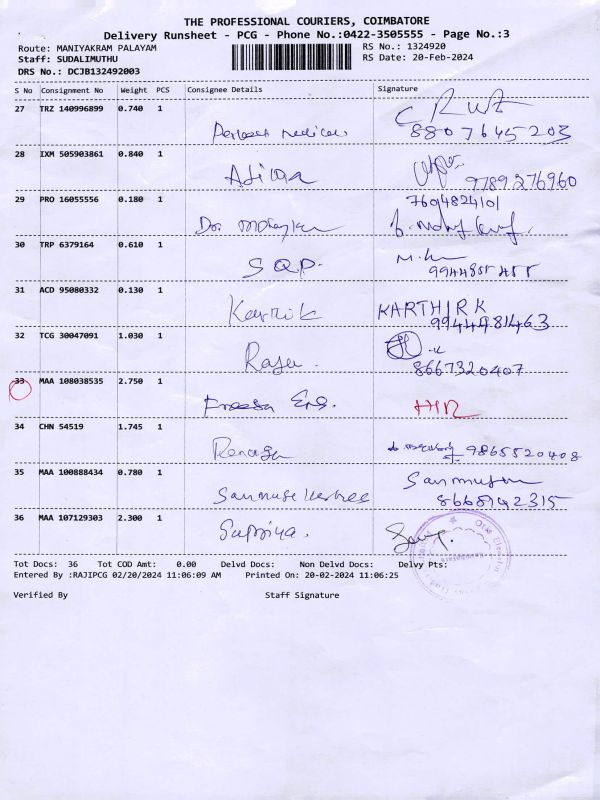 THE PROFESSIONAL COURIERS, COIMBATORE
Delivery Runsheet - PCG - Phone No.:0422-3505555 - Page No.:3
Route: MANIYAKRAM PALAYAM RS No.: 1324920
Staff: SUDALIMUTHU RS Date: 20-Feb-2024
DRS No.: DCJB132492003
S No Consignment No Weight PCS Consignee Details Signature
27 TRZ 140996899 0.740 1
8807645203
28 IXM 505903861 0.840 1
9789276960
29 PRO 16055556 0.180 1 Dr.
7604824101
30 TRP 6379164 0.610 1 SQP.
31 ACD 95080332 0.130 1 Kartik KARTHIRK
9944481463
32 TCG 30047091 1.030 1 Raja.
8667320407
33 MAA 108038535 2.750 1
34 CHN 54519 1.745 1
9865520408
35 MAA 100888434 0.780 1
36 MAA 107129303 2.300 1 Supriya.
Tot Docs: 36 Tot COD Amt: 0.00 Delvd Docs: Non Delvd Docs: Delvy Pts:
Entered By :RAJIPCG 02/20/2024 11:06:09 AM Printed On: 20-02-2024 11:06:25
Verified By Staff Signature